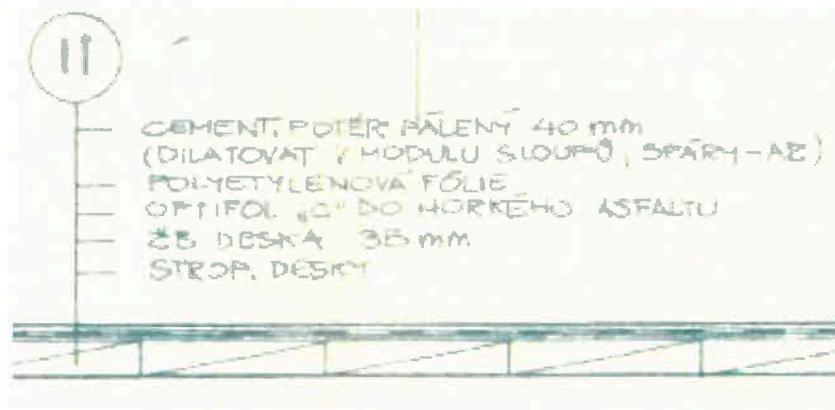 11
CEMENT. POTĚR PÁLENÝ 40 mm
(DILATOVAT V MODULU SLOUPŮ, SPÁRY-AZ)
POLYETYLENOVÁ FÓLIE
OPTIFOL „C" DO HORKÉHO ASFALTU
ŽB DESKA 35 mm
STROP. DESKY